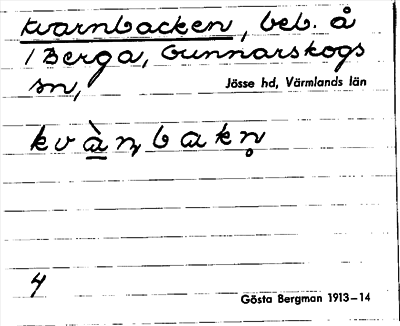 kvarnbacken, beb. å
1 Berga, Gunnarskogs
sn,
Jösse hd, Värmlands län
kvàṇbakn̥
4
Gösta Bergman 1913–14